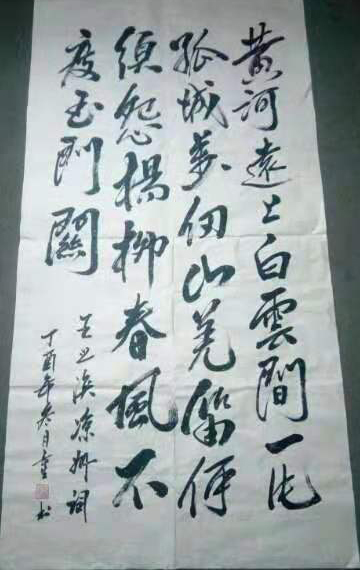 黄河遠上白雲間一片
孤城萬仞山羌笛何
須怨楊柳春風不
度玉門關
王之涣凉州詞
丁酉年冬月书